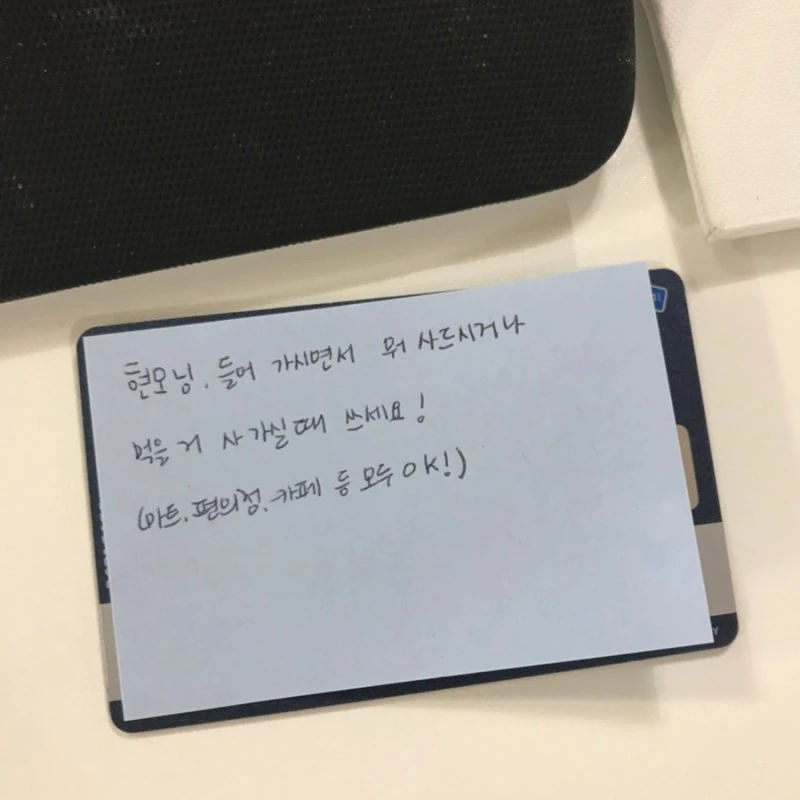 현모닝, 들어 가시면서 뭐 사드시거나
먹을 거 사 가실 때 쓰세요!
(마트, 편의점, 카페 등 모두 OK!)